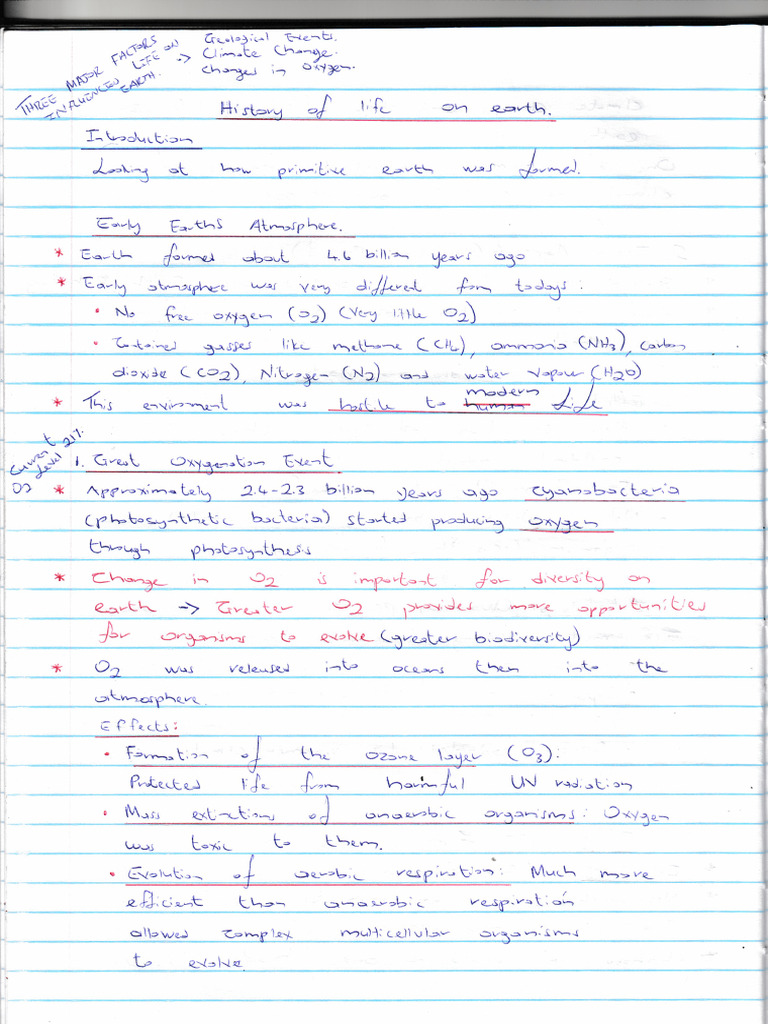 THREE MAJOR FACTORS
INFLUENCED LIFE ON
EARTH.
-> Geological Events.
Climate Change.
Changes in Oxygen.
History of life on earth.
Introduction
Looking at how primitive earth was formed.
Early Earths Atmosphere.
* Earth formed about 4.6 billion years ago
* Early atmosphere was very different from todays:
• No free oxygen (O2) (Very little O2)
• Contained gasses like methane (CH4), ammonia (NH3), carbon
dioxide (CO2), Nitrogen (N2) and water vapour (H2O)
modern
* This enviroment was hostile to human life
Current
Level 21%
O2
1. Great Oxygenation Event
* Approximately 2.4-2.3 billion years ago cyanobacteria
(photosynthetic bacteria) started producing oxygen
through photosynthesis
* Change in O2 is important for diversity on
earth -> Greater O2 provides more opportunities
for organisms to evolve (greater biodiversity)
* O2 was released into oceans then into the
atmosphere.
Effects:
• Formation of the ozone layer (O3):
Protected life from harmful UV radiation
• Mass extinctions of anaerobic organisms: Oxygen
was toxic to them.
• Evolution of aerobic respiration: Much more
efficient than anaerobic respiration
allowed complex multicellular organisms
to evolve.